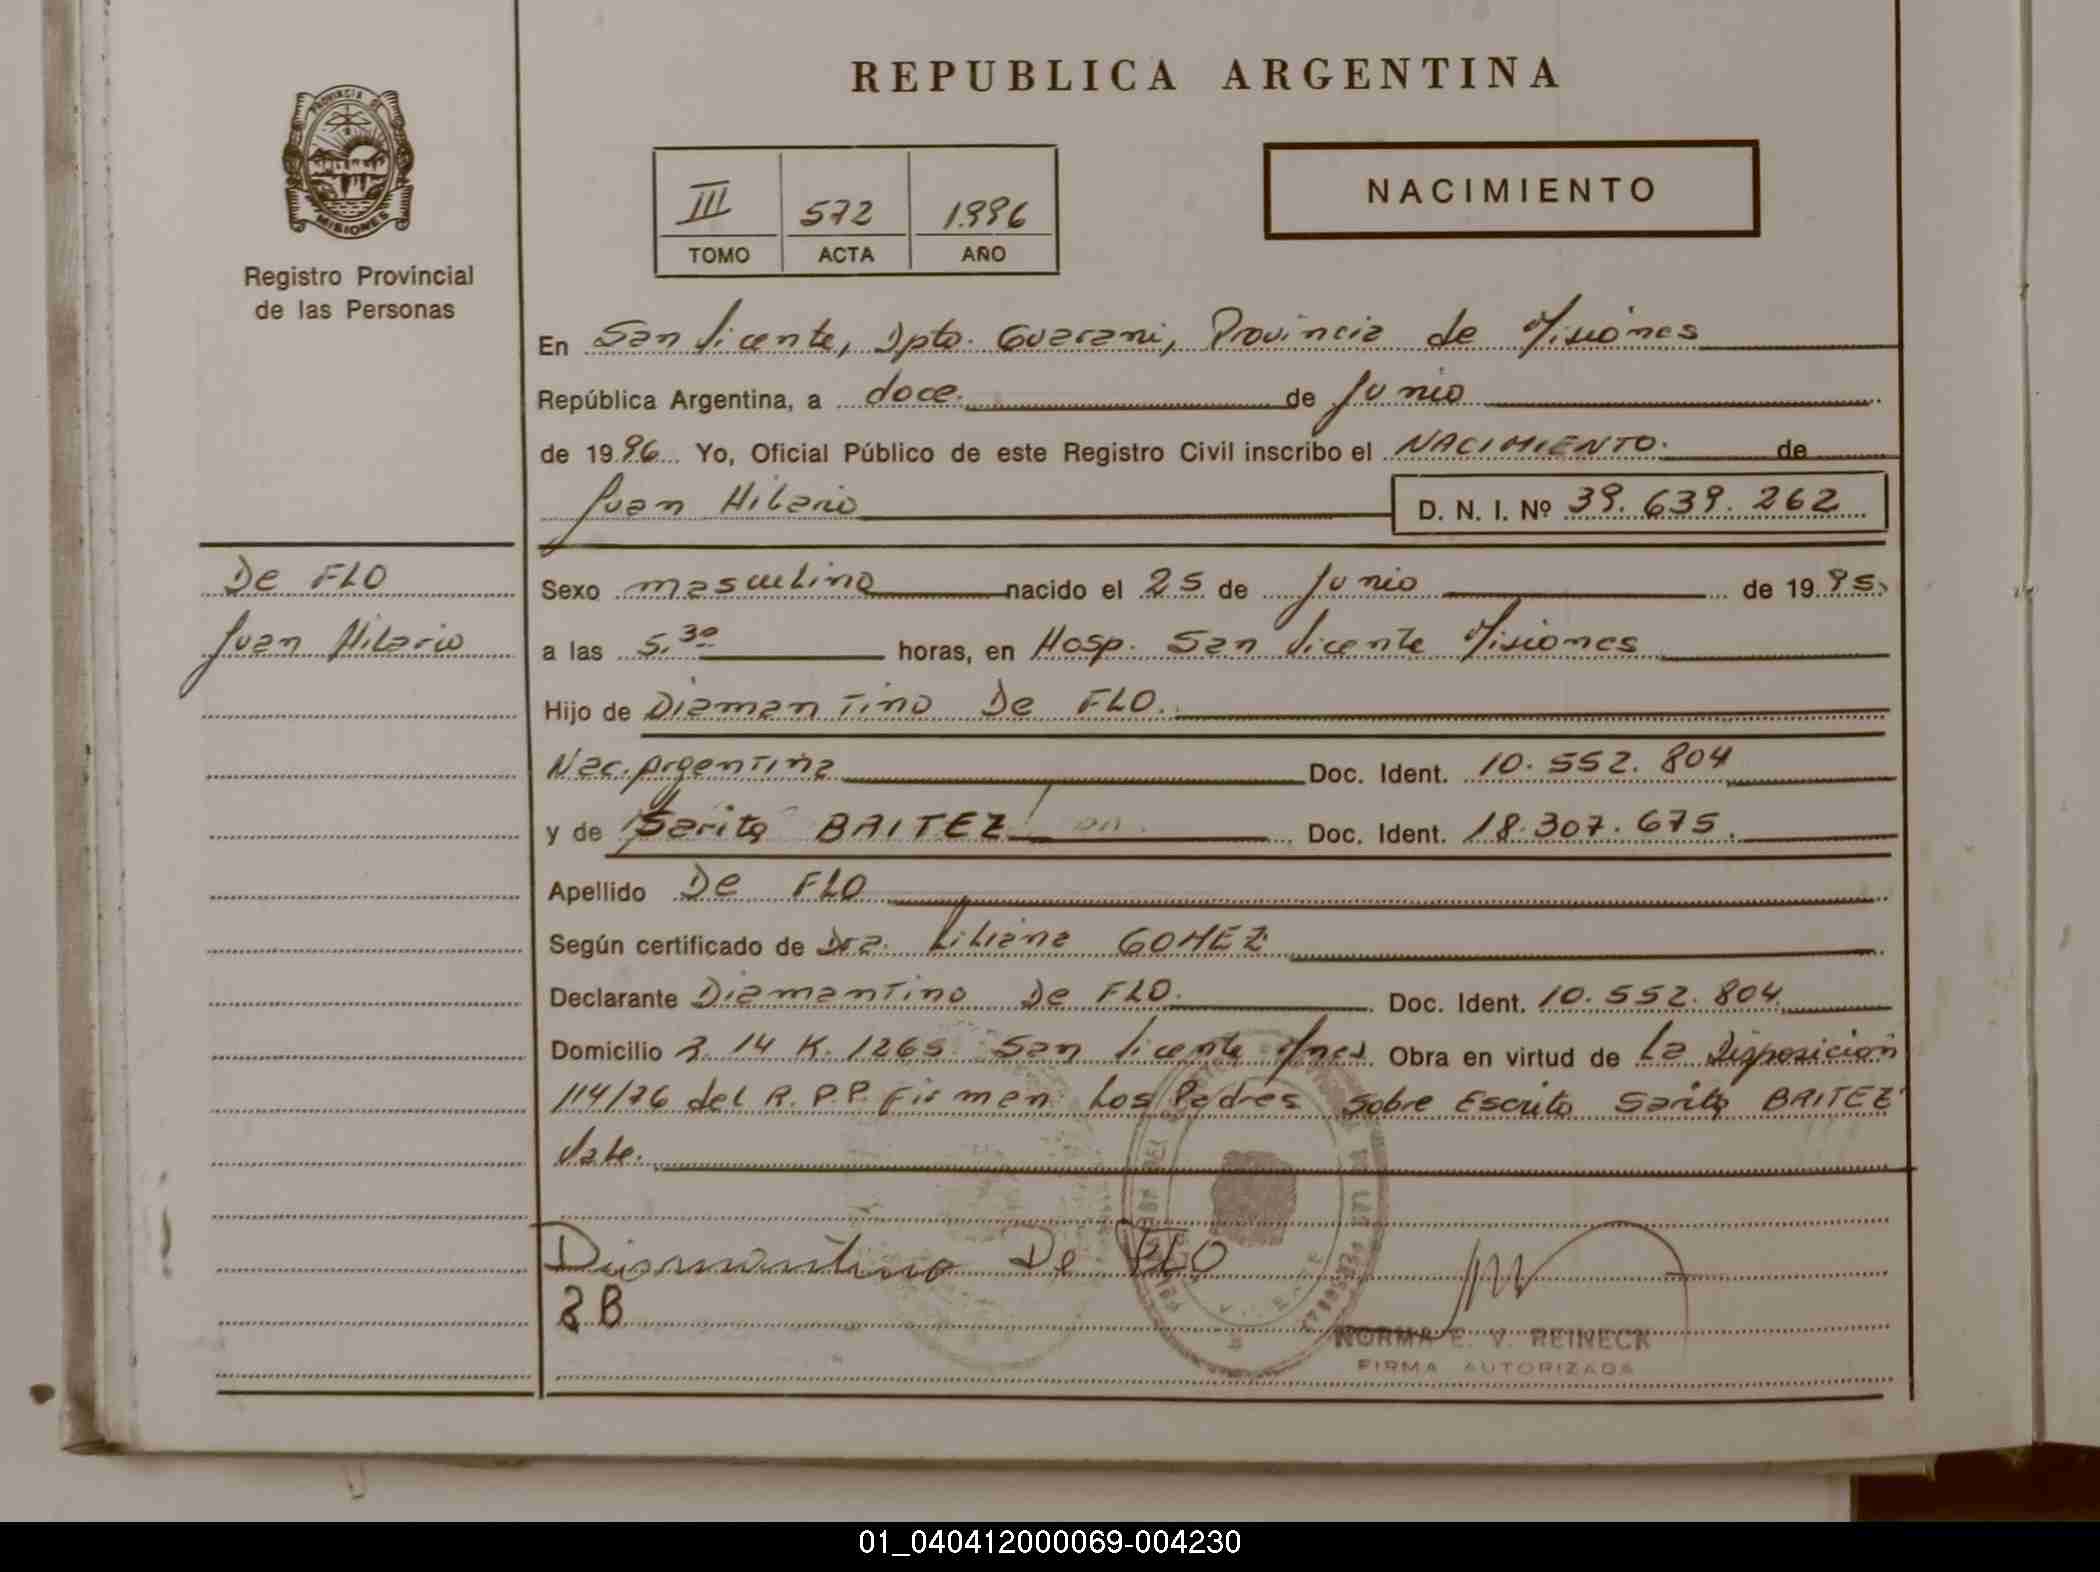 REPUBLICA ARGENTINA
PROVINCIA DE
MISIONES
Registro Provincial
de las Personas
III 572 1996
TOMO ACTA AÑO
NACIMIENTO
En San Vicente, Dpto. Guarani, Provincia de Misiones
República Argentina, a doce de Junio
de 1996 Yo, Oficial Público de este Registro Civil inscribo el NACIMIENTO de
Juan Hilario D. N. I. Nº 39.639.262
De FLO
Juan Hilario
Sexo masculino nacido el 25 de Junio de 1995
a las 5.30 horas, en Hosp. San Vicente Misiones
Hijo de Diamantino De FLO.
Nac. Argentina Doc. Ident. 10.552.804
y de Sarita BAITEZ Doc. Ident. 18.307.675.
Apellido De FLO
Según certificado de Dra. Liliana GOMEZ
Declarante Diamantino De FLO. Doc. Ident. 10.552.804
Domicilio 14 K. 1265 San Vicente Mnes. Obra en virtud de La Disposición
114/76 del R.P.P. Firman Los Padres Sobre Escrito Sarita BAITEZ
Vale.
Diamantino De FLO
B
NORMA E. V. REINECK
FIRMA AUTORIZADA
01_040412000069-004230